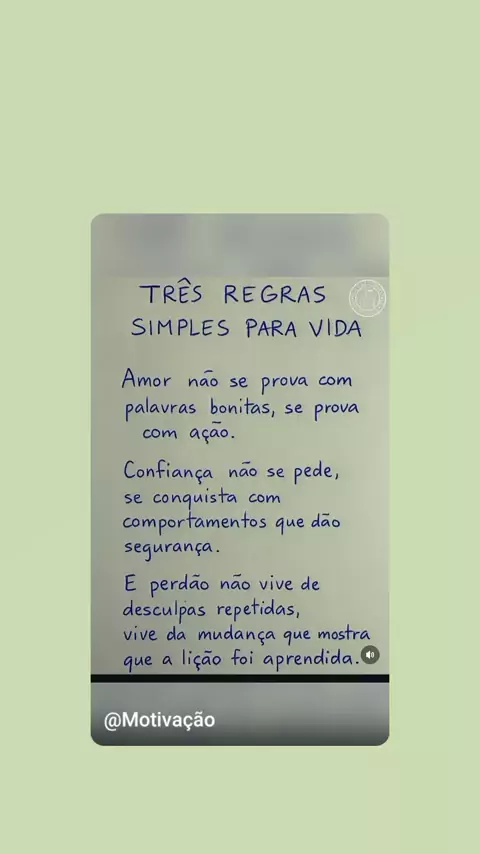 TRÊS REGRAS
SIMPLES PARA VIDA
Amor não se prova com
palavras bonitas, se prova
com ação.
Confiança não se pede,
se conquista com
comportamentos que dão
segurança.
E perdão não vive de
desculpas repetidas,
vive da mudança que mostra
que a lição foi aprendida.
@Motivação